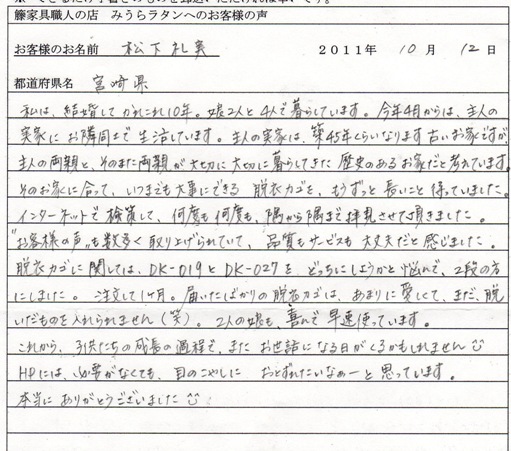 籐家具職人の店 みうらラタンへのお客様の声
お客様のお名前 松下礼実 2011年 10月 12日
都道府県名 宮崎県
私は、結婚して かれこれ10年。娘2人と4人で暮らしています。今年4月からは、主人の
実家に お隣同士で 生活しています。主人の実家は、築45年くらいなります 古いお家ですが、
主人の両親と、そのまた両親が 大切に大切に暮らしてきた 歴史のあるお家だと考えています。
そのお家に合って、いつまでも大事にできる 脱衣カゴを、もうずっと 長いこと 待っていました。
インターネットで 検索して、何度も何度も、隅から隅まで拝見させて頂きました。
"お客様の声"も数多く 取り上げられていて、品質もサービスも 大丈夫だと感じました。
脱衣カゴに関しては、DK-019とDK-027を どっちにしようかと悩んで、2段の方
にしました。 注文して1ヶ月。届いたばかりの脱衣カゴは、あまりに愛しくて、まだ、脱
いだものを入れられません(笑)。2人の娘も、喜んで 早速使っています。
これから、子供たちの成長の過程で、また お世話になる日がくるかもしれません
HPには、必要がなくても、目のこやしに おとずれたいなぁーと思っています。
本当に ありがとうございました